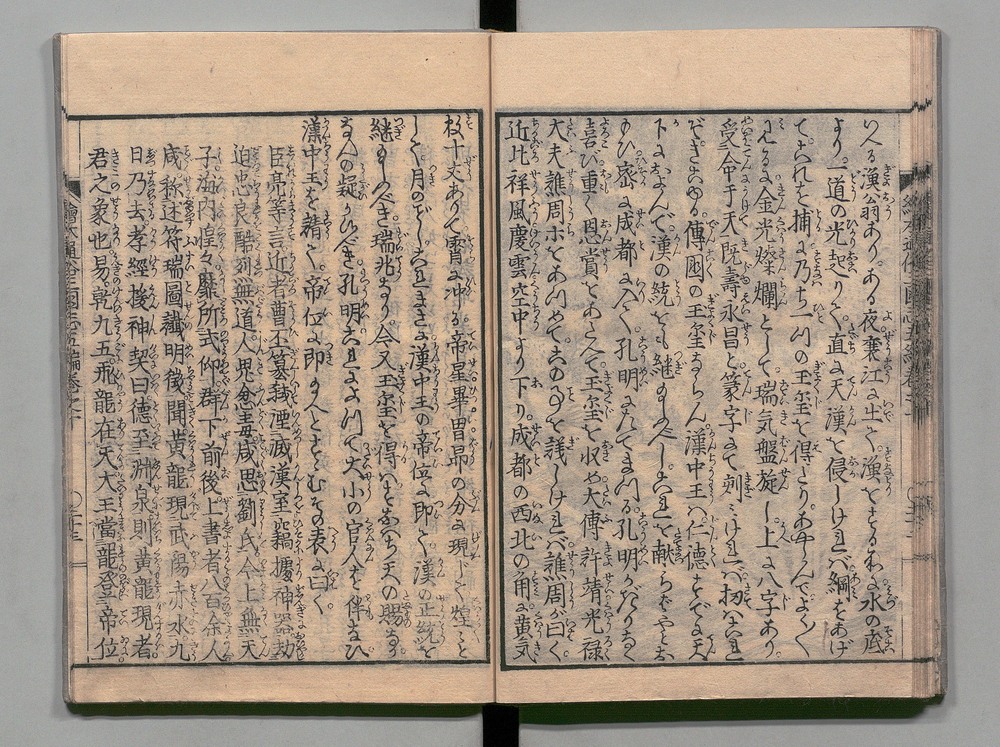 いへる漁翁あり。ある夜襄江に出て。漁をするわに水の底
より。一道の光起りて。直に天漢を侵しければ網をあげ
てこれを捕に乃ち一つの玉璽を得たり。あやしんでよく〱
見るに金光燦爛として。瑞気盤旋し上に八字あり
受命于天既壽永昌と篆字にて刻
傳国の玉璽ならん漢中王は仁德をもて天
下になんで漢の統をも継
ひ密に成都に入て孔明に
喜び重く恩賞をあたへて玉璽を收め大傅許靖光禄
大夫譙周ホをあつめてこの事を議しければ譙周が曰く
近比祥風慶雲空中より下り。成都の西北の角に黄気
数十丈ありて霄に冲る帝星畢胃昴の分に現じて煌々と
して月のごとしこれまさに漢中王の帝位に即て漢の正統を
継玉ふべき瑞兆なり今又玉璽を得ことすなはち天の賜なり
なんの疑かべき孔明これによつて大小の官人を伴なひ
漢中王を請て帝位に即玉へとすゝむその表に曰く
臣亮等言近者曹丕篡弑湮滅漢室竊據神器劫
迫忠良酷烈無道人鬼忿毒咸思劉氏今上無天
子海内惶々靡所式仰群下前後上書者八百余人
咸称述符瑞圖讖明徴聞黄龍現武陽赤水九
日乃去孝經援神契曰德至淵泉則黄龍現者
君之象也易乾九五飛龍在天大王當龍登帝位
繪本通俗三國志五編巻之十